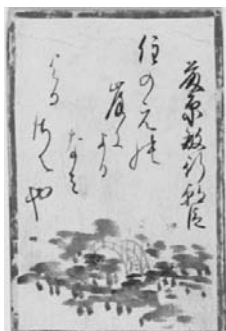 藤原敏行朝臣
住の江の
岸による
なみ
よるさへ也